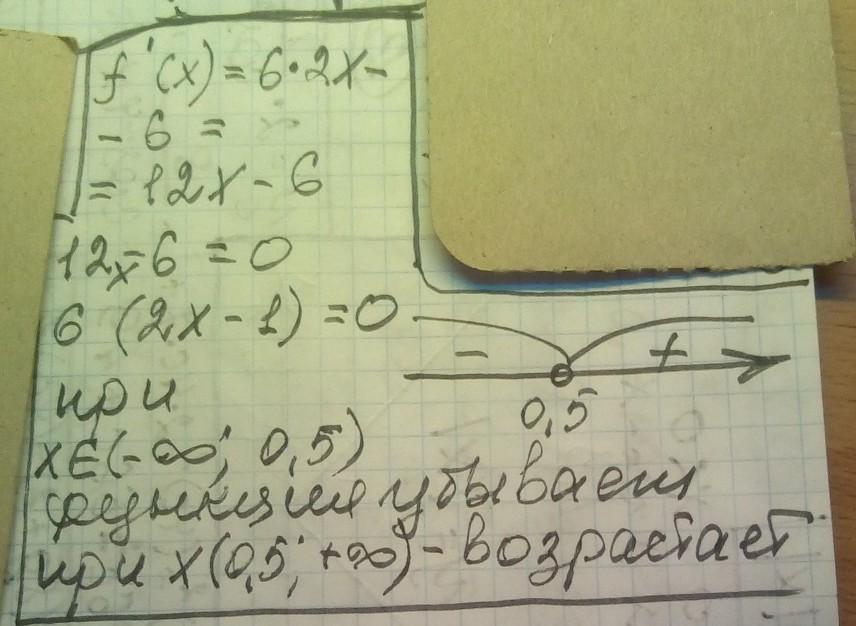 f'(x) = 6·2x -
- 6 =
= 12x - 6
12x - 6 = 0
6 (2x - 1) = 0
- +
0,5
при
x∈(-∞; 0,5)
функция убывает
при x(0,5; +∞) - возрастает